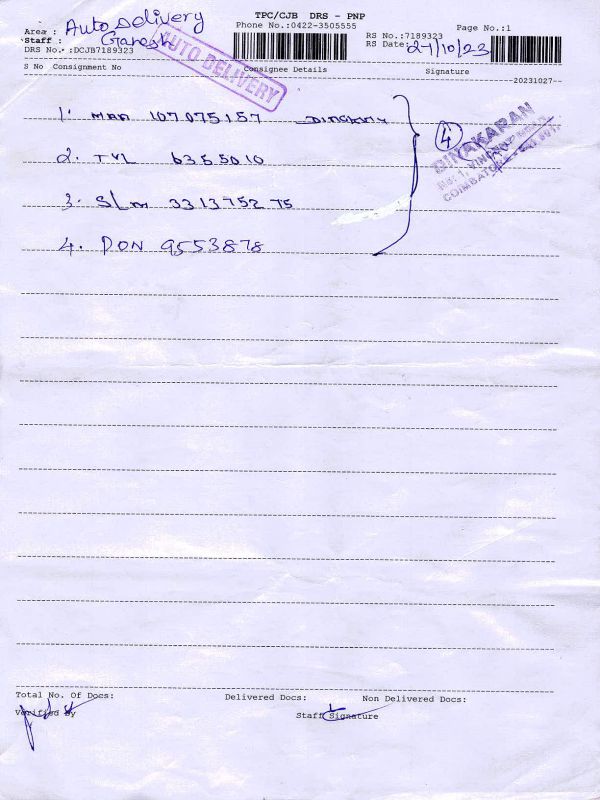 TPC/CJB DRS - PNP
Area : Auto Delivery
Phone No.:0422-3505555
Page No.:1
Staff : Ganesh
RS No.:7189323
DRS No.:DCJB7189323
RS Date: 27/10/23
AUTO DELIVERY
S No Consignment No Consignee Details Signature
20231027
1. MAA 107075157 DINAKARAN
2. TVL 6355010
3. SLM 331375275
4. PON 9553878
4
DINAKARAN
Total No. Of Docs: Delivered Docs: Non Delivered Docs:
Verified By Staff Signature